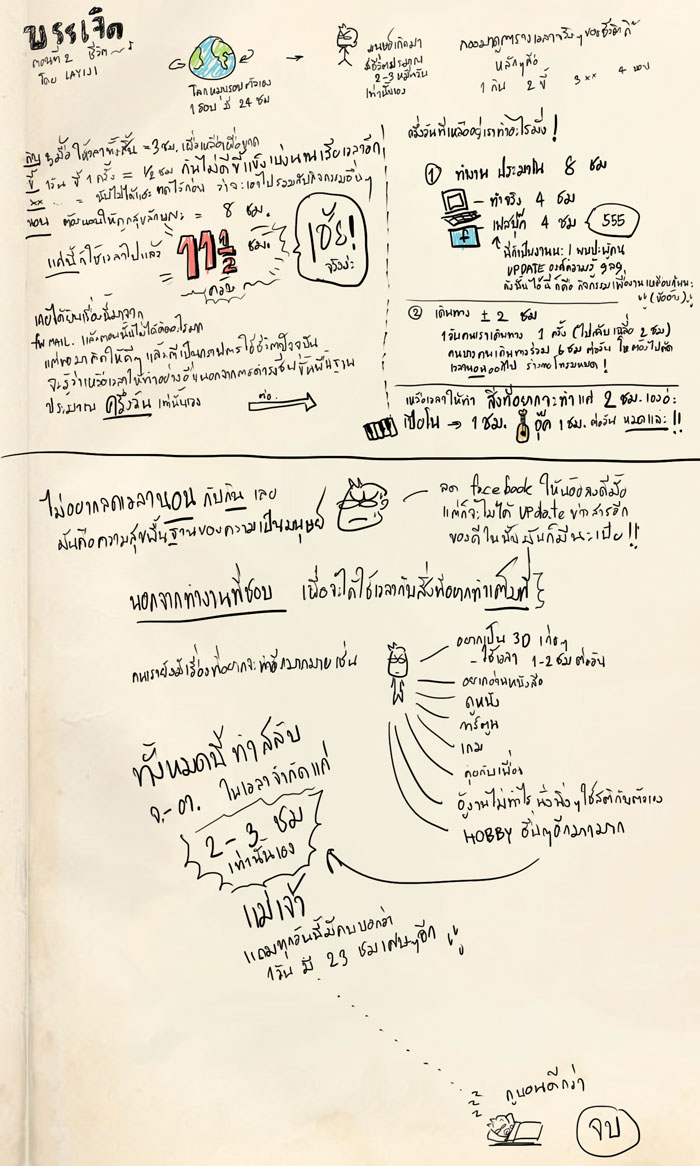 บรรเจิด
ตอนที่ 2 ชีวิต
โดย LAYIJI
โลกหมุนรอบตัวเอง
1 รอบ มี 24 ชม
มนุษย์เกิดมา
มีชีวิตประมาณ
2-3 หมื่นวัน
เท่านั้นเอง
ลองมาดูตารางเวลาจริงๆของชีวิต
หลักๆคือ
1 กิน 2 ขี้ 3 xx 4 นอน
กิน 3 มื้อ ให้เวลาทั้งสิ้น = 3 ชม. เผื่อเหลือเผื่อขาด
ขี้ 1 วัน ขี้ 1 ครั้ง = 1/2 ชม กินไม่ดีขี้แข็งเบ่งนานเสียเวลาอีก
xx ... = ว่าจะเอาไปรวมกับกิจกรรมอื่นๆ
นอน ต้องนอนให้ถูกสุขลักษณะ = 8 ชม.
แค่นี้ก็ใช้เวลาไปแล้ว = 11 1/2 ชม.
ครับ
เชี้ย!
จริงป่ะ
เคยได้ยินเรื่องนี้มาจาก
FW MAIL. และตอนนั้นไม่ได้คิดอะไรมาก
แต่พอมาคิดให้ดีๆ และตีเป็นกราฟการใช้ชีวิตปัจจุบัน
จะรู้ว่าเหลือเวลาให้ทำอย่างอื่นนอกจากการดำรงชีพขั้นพื้นฐาน
ประมาณ ครึ่งวัน เท่านั้นเอง
ต่อ.
ครึ่งวันที่เหลืออยู่เราทำอะไรมั่ง!
1 ทำงาน ประมาณ 8 ชม
- ทำจริง 4 ชม
- เฟสบุ๊ค 4 ชม
555
f
นี่ก็เป็นงานนะ! พบปะผู้คน
UPDATE องค์ความรู้ ฯลฯ
ดังนั้นไอ้นี่ก็คือ กิจกรรมเพื่องานเหมือนกันนะ
(ข้ออ้าง)
2 เดินทาง ± 2 ชม
1 วันคนเราเดินทาง 1 ครั้ง (ไปกลับ เฉลี่ย 2 ชม)
คนบางคนเดินทางร่วม 6 ชม ต่อวัน ต้องไปตัด
เวลานอนออกไป ร่างกายโทรมหมด!
เหลือเวลาให้ทำ สิ่งที่อยากจะทำแค่ 2 ชม. เองอ่ะ
เปียโน → 1 ชม. อุ๊ค 1 ชม. ต่อวัน หมดและ!!
ไม่อยากลดเวลานอน กับกิน เลย
มันคือความสุขพื้นฐานของความเป็นมนุษย์
ลด facebook ให้น้อยลงดีมั้ย
แต่ก็จะไม่ได้ update ข่าวสารอีก
ของดีในนั้นมันก็มีนะเบ้ย!!
นอกจากทำงานที่ชอบ เพื่อจะได้ใช้เวลากับสิ่งที่อยากทำเต็มที่
คนเรายังมีเรื่องที่อยากจะทำอีกมากมาย เช่น
อยากเป็น 3D เก่งๆ
- ใช้เวลา 1-2 ชม ต่อวัน
อยากอ่านหนังสือ
ดูหนัง
การ์ตูน
เกม
คุยกับเพื่อน
อู้งานไม่ทำไร นั่งนิ่งๆ ใช้สติกับตัวเอง
HOBBY อื่นๆอีกมากมาก
ทั้งหมดนี้ ทำสลับ
จ.-อา. ในเวลาจำกัดแค่
2-3 ชม
เท่านั้นเอง
แม่เจ้า
แถมทุกวันนี้มีคนบอกว่า
1 วัน มี 23 ชมเศษๆอีก
z z z
กูนอนดีกว่า
จบ